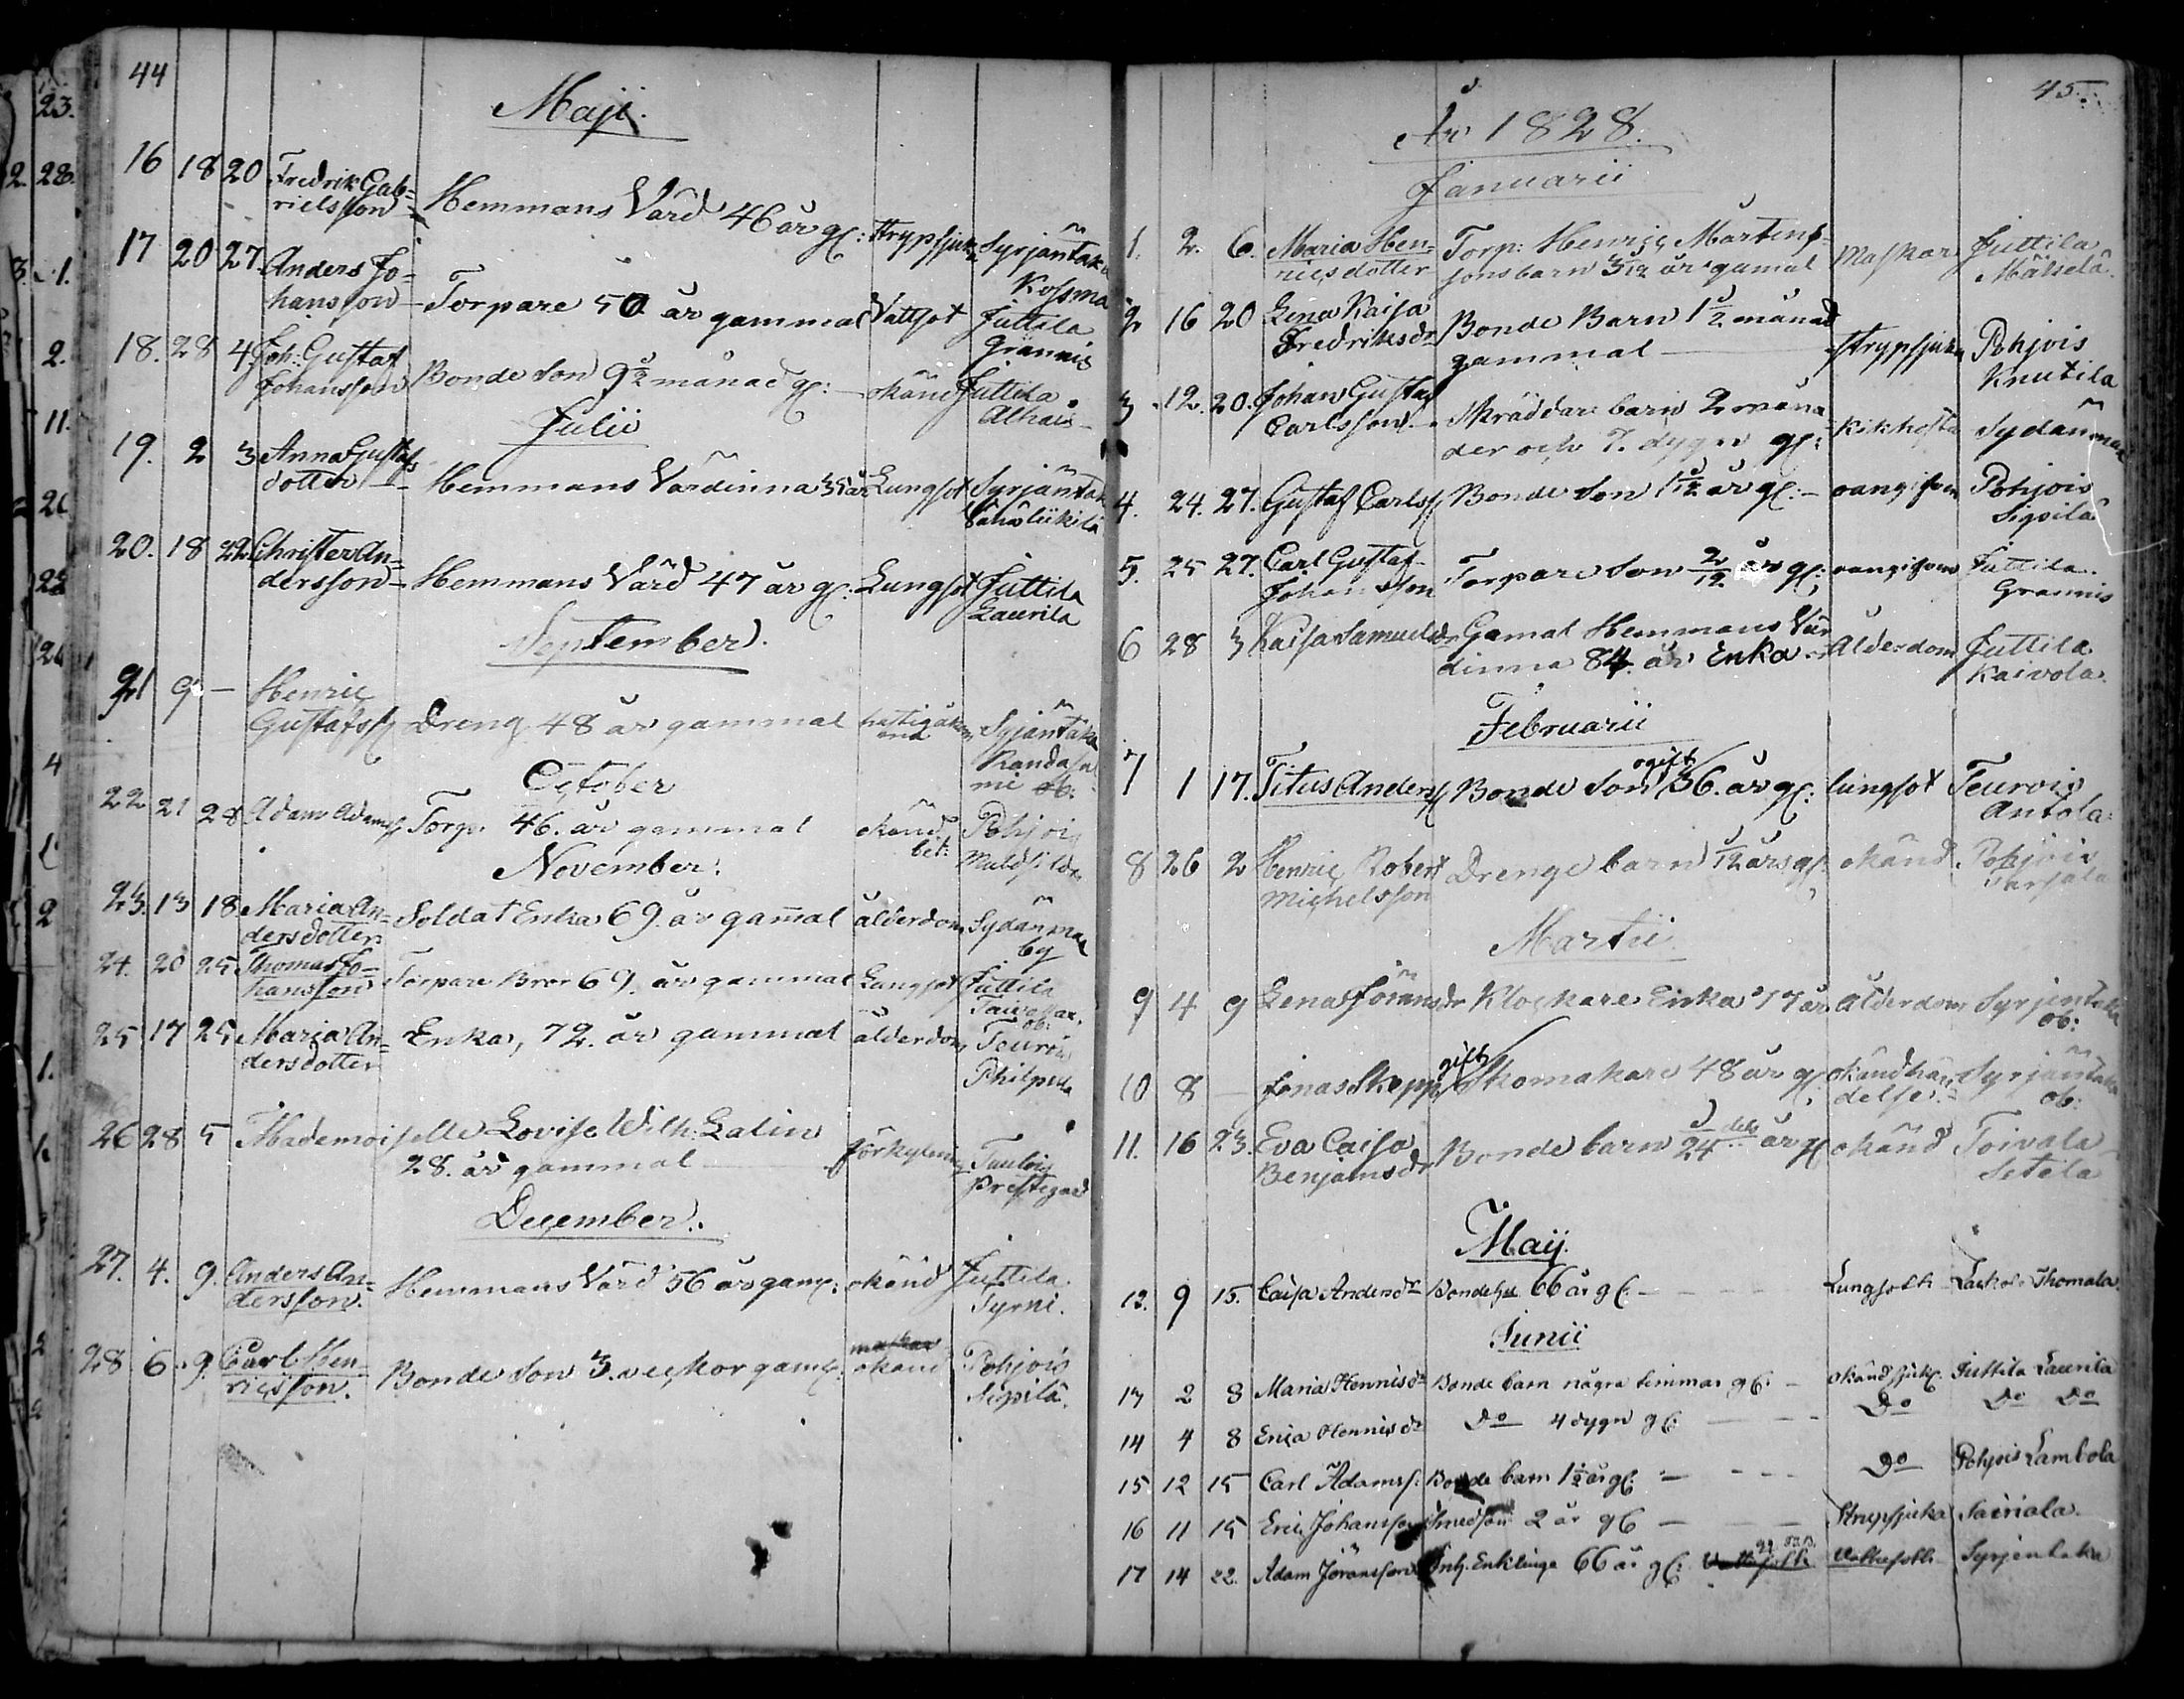 44
Maji.
16 18 20 Fredrik Gab=
rielsson Hemmans Värd 46 år gl: strypsjuka Syrjäntaka
Kossma
17 20 27. Anders Jo=
hansson Torpare 50 år gammal Vattsot Juttila
Grannis
18. 28 4 Joh: Gustaf
Johansson Bonde Son 9 1/2 månad gl: okänd Juttila
Julii
19. 2 3 Anna Gustafs
dotter Hemmans Värdinna 35 år Lungsot Syrjäntaka
20. 18 22 Christer An=
dersson Hemmans Värd 47 år gl: Lungsot Juttila
Laurila
September.
21 9 — Henric
Gustafss Dreng 48 år gammal Syjäntaka
October
22 21 28 Adam Adamss Torp: 46. år gammal okänd Pohjois
bet:
November.
23. 13 18 Maria An=
dersdotter Soldat Enka 69. år gamal ålderdom Sydänmaa
by
24. 20 25 Thomas Jo=
hansson Torpare Bror 69. år gammal Lungsot Juttila
ob:
25 17 25 Maria An=
dersdotter Enka, 72. år gammal ålderdom Teuro
Philpula
26 28 5 Mademoiselle Lovisa Wilh: Lalin
28. år gammal förkylning Tulois
Prestegård
December.
27. 4. 9. Anders An=
dersson. Hemmans Värd 56 år gam: okänd Juttila.
Tyrni.
28 6. 9. Carl Hen=
ricsson. Bonde Son 3. veckor gam: maskar okänd Pohjois
Sipilä.
45.
År 1828.
Januarii
1. 2. 6. Maria Hen=
ricsdotter Torp: Henric Mårtens=
sons barn 3/12 år gamal Maskar Juttila
Mälselä
2 16 20 Lena Kaisa
Fredriksdr Bonde Barn 1 1/2 månad
gammal strypsjuka Pohjois
Knutila
3 12. 20. Johan Gustaf
Carlsson Skräddare barn 2 måna
der och 7. dygn gl: Kikhosta Sydänmaa
4. 24. 27. Gustaf Carlss Bonde Son 1 1/12 år gl: oangifven Pohjois
Sipilä
5. 25 27. Carl Gustaf
Johansson Torpare Son 2/12 år gl: oangifven Juttila.
Grannis
6 28 3 Kaisa Samuelsdr Gamal Hemmans Vär
dinna 84. år Enka Ålderdom Juttila
Kaivola.
Februarii
7 1 17. Titus Anderss Bonde Son ogift 36. år gl: lungsot Teuro
Antola:
8 26 2 Henric Robert
Michelsson Drenge barn 1/12 års gl: okänd Pohjois
Martii
9 4 9 Lena Jöransdr Klockare Enka 77 år Ålderdom Syrjentaka
ob:
10 8 — Jonas Skepp gift Skomakare 48 år gl: okänd hän
delse Syrjäntaka
ob:
11. 16 23. Eva Caisa
Benjamsdr Bonde barn 1/24 dels år gl okänd Toivala
Setälä
Maij.
12. 9 15. Caisa Andersdr Bonde hu 66 år gl. Lungsoth Laikola Thomala.
Junii
13 2 8 Maria Hennisdr Bonde barn några timmar gl: Okänd sjukl. Juttila Laurila
14 4 8 Erica Hennisdr Do 4 dygn gl Do Do Do
15 12 15 Carl Adamss: Bonde barn 1 1/2 år gl: Do Pohjois Lambola
16 11 15 Eric Johansson Smedson 2 år gl Strypsjuka Sairiala.
17 14 22. Adam Jöransson Inh. Enklinge 66 år gl: Vattusoth Syrjentaka